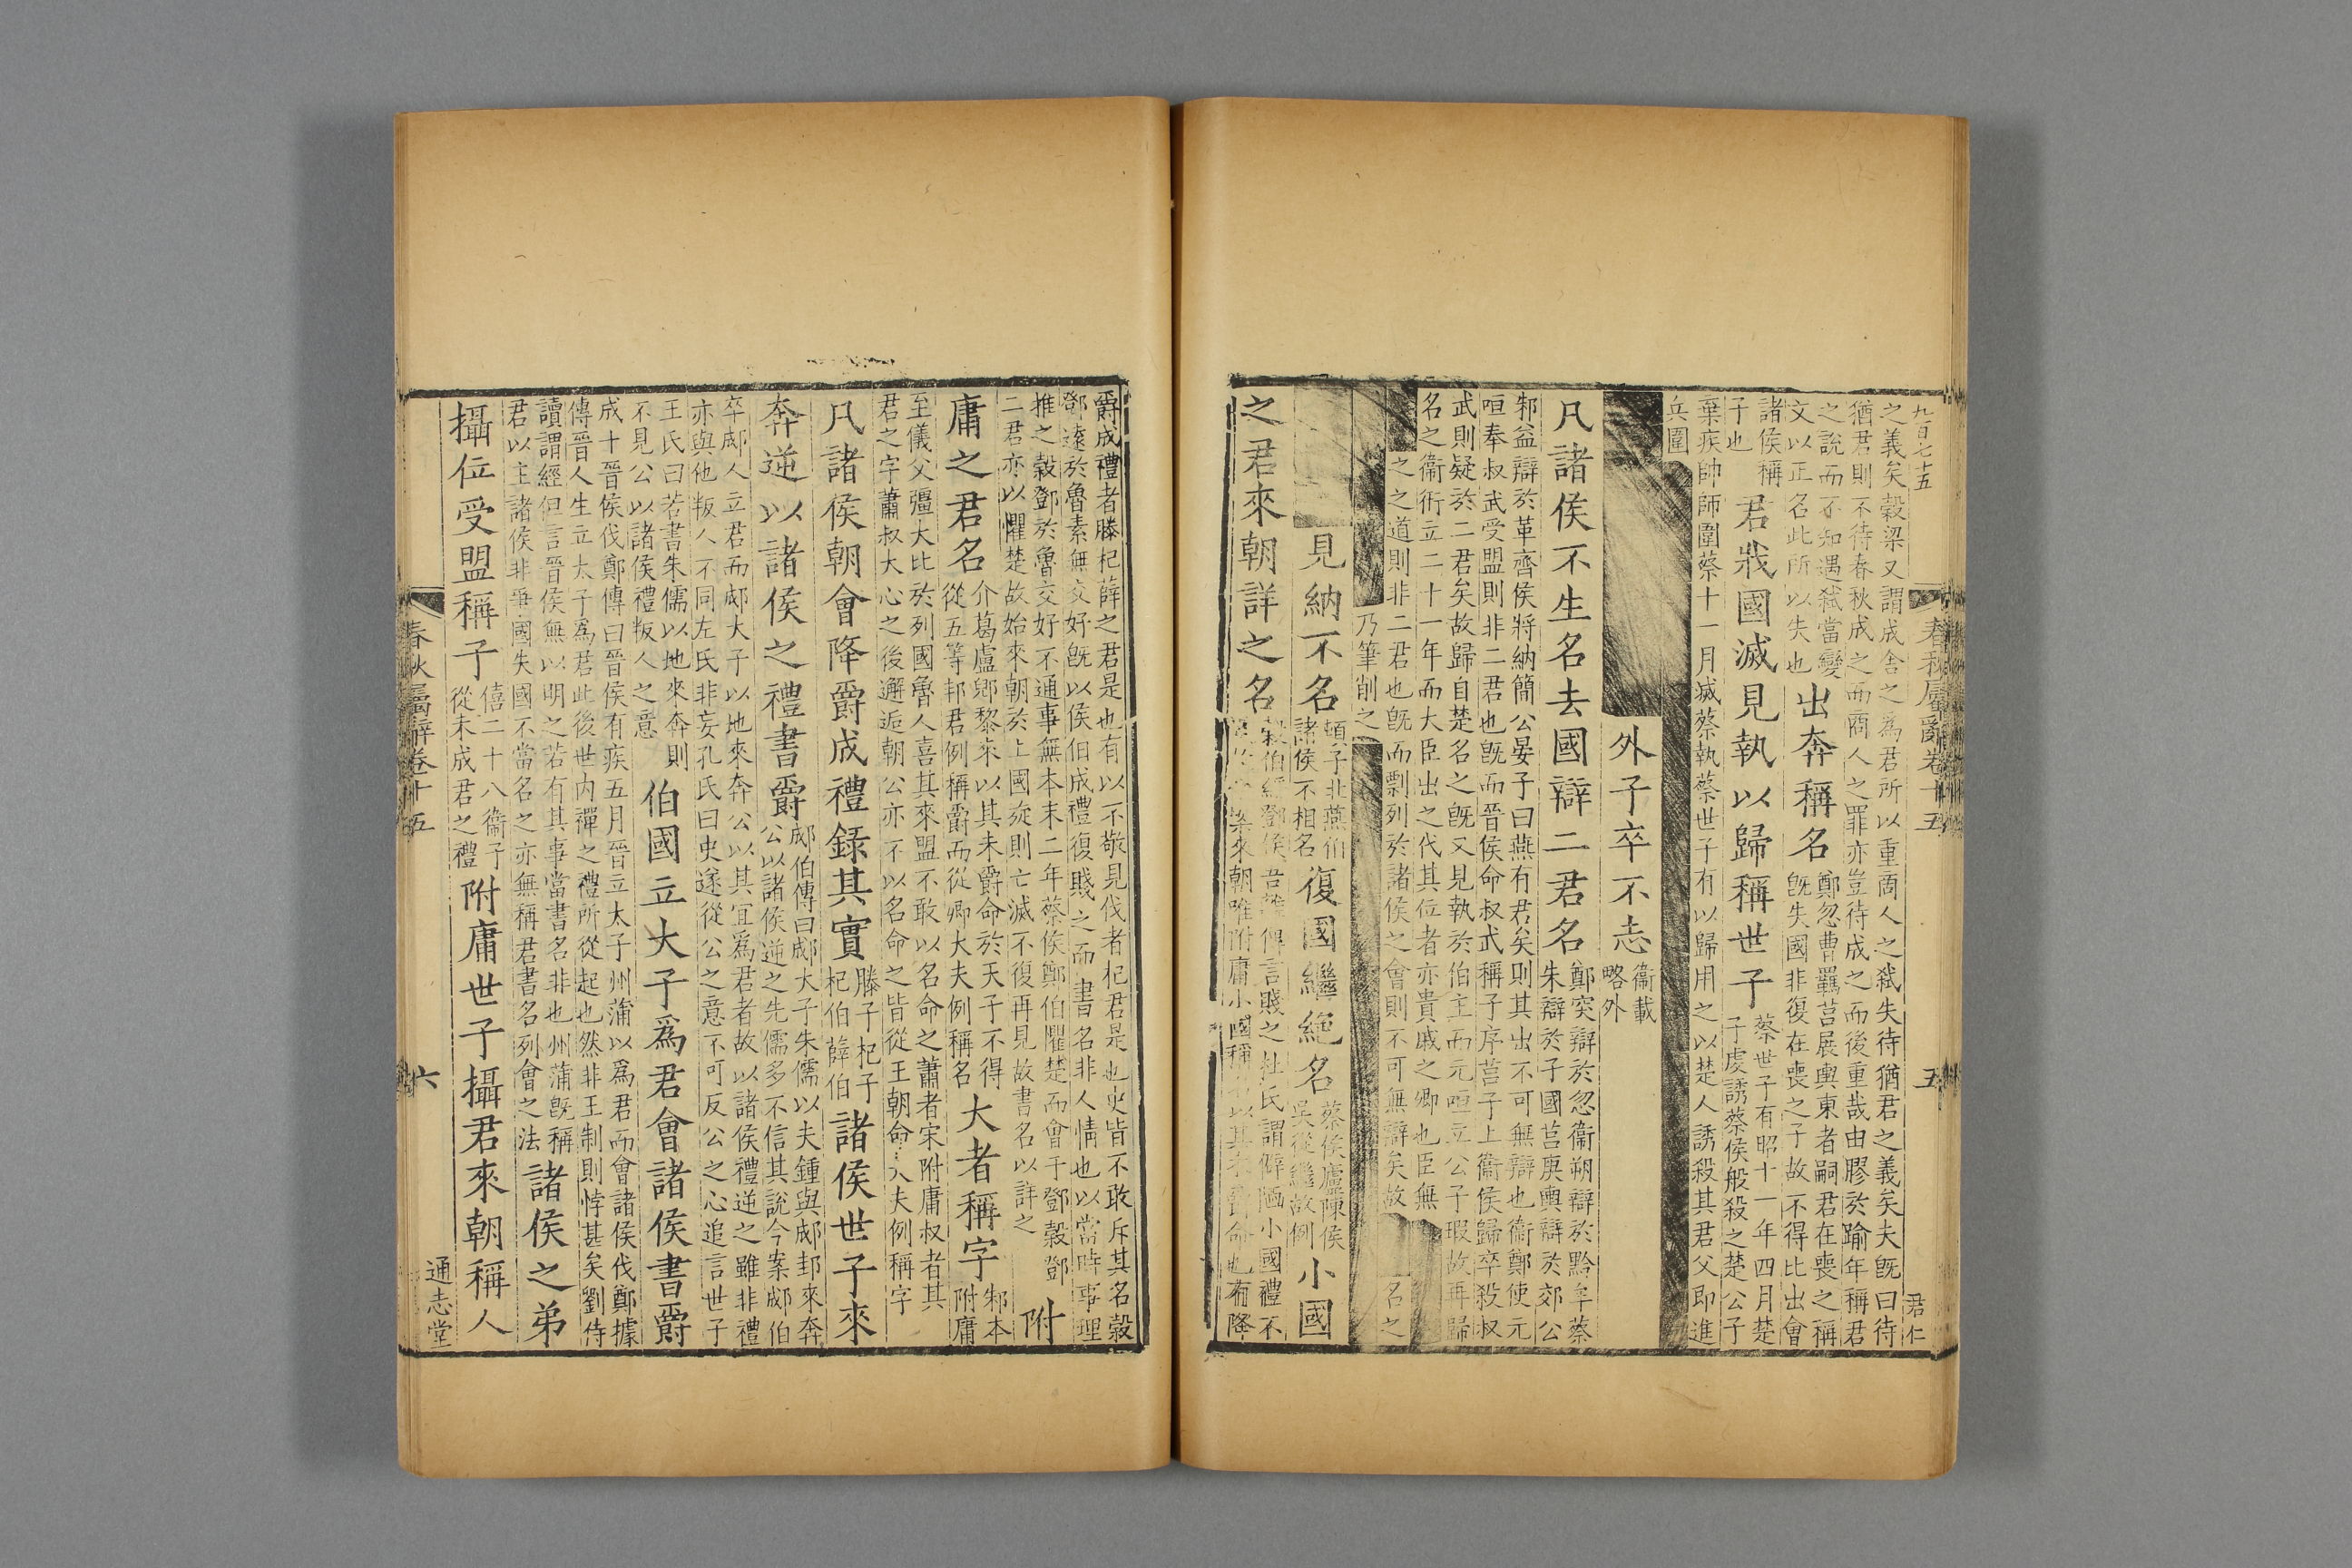 九百七十五
之義矣穀梁又謂成舍之為君所以重商人之弑失待猶君之義矣夫旣曰待
猶君則不待春秋成之而商人之罪亦豈待成之而後重哉由膠於踰年稱君
之說而不知遇弑當變
文以正名此所以失也
出奔稱名
鄭忽曹羈莒展輿東者嗣君在喪之稱
旣失國非復在喪之子故不得比出會
諸侯稱
子也
君戕國滅見執以歸稱世子
蔡世子有昭十一年四月楚
子虔誘蔡侯般殺之楚公子
棄疾帥師圍蔡十一月滅蔡執蔡世子有以歸用之以楚人誘殺其君父即進
兵圍
外子卒不志
衞載
略外
凡諸侯不生名去國辯二君名
鄭突辯於忽衞朔辯於黔牟蔡
朱辯於子國莒庚輿辯於郊公
邾益辯於革齊侯將納簡公晏子曰燕有君矣則其出不可無辯也衞鄭使元
咺奉叔武受盟則非二君也旣而晉侯命叔武稱子序莒子上衞侯歸卒殺叔
武則疑於二君矣故歸自楚名之旣又見執於伯主而元咺立公子瑕故再歸
名之衞衎立二十一年而大臣出之代其位者亦貴戚之卿也臣無
之之道則非二君也旣而剽列於諸侯之會則不可無辯矣故
名之
乃筆削之
見納不名
頓子北燕伯
諸侯不相名
復國繼絶名
蔡侯廬陳侯
吳從繼故例
小國
之君來朝詳之名
穀伯綏鄧侯吾離俾言賤之杜氏謂僻陋小國禮不
來朝唯附庸小國稱
命也有降
春秋屬辭卷十五
五
君仁
爵成禮者滕杞薛之君是也有以不敬見伐者杞君是也史皆不敢斥其名穀
鄧遠於魯素無交好旣以侯伯成禮復賤之而書名非人情也以當時事理
推之穀鄧於魯交好不通事無本末二年蔡侯鄭伯懼楚而會于鄧穀鄧
二君亦以懼楚故始來朝於上國旋則亡滅不復再見故書名以詳之
附
庸之君名
介葛盧郳黎來以其未爵命於天子不得
從五等邦君例稱爵而從卿大夫例稱名
大者稱字
邾本
附庸
至儀父彊大比於列國魯人喜其來盟不敢以名命之蕭者宋附庸叔者其
君之字蕭叔大心之後邂逅朝公亦不以名命之皆從王朝命大夫例稱字
凡諸侯朝會降爵成禮錄其實
滕子杞子
杞伯薛伯
諸侯世子來
奔逆以諸侯之禮書爵
郕伯傳曰郕大子朱儒以夫鍾與郕邽來奔
公以諸侯逆之先儒多不信其說今案郕伯
卒郕人立君而郕大子以地來奔公以其宜爲君者故以諸侯禮逆之雖非禮
亦與他叛人不同左氏非妄孔氏曰史遂從公之意不可反公之心追言世子
王氏曰若書朱儒以地來奔則
不見公以諸侯禮叛人之意
伯國立大子爲君會諸侯書爵
成十晉侯伐鄭傳曰晉侯有疾五月晉立太子州蒲以爲君而會諸侯伐鄭據
傳晉人生立太子爲君此後世内禪之禮所從起也然非王制則悖甚矣劉侍
讀謂經但言晉侯無以明之若有其事當書名非也州蒲旣稱
君以主諸侯非爭國失國不當名之亦無稱君書名列會之法
諸侯之弟
攝位受盟稱子
僖二十八衞子
從未成君之禮
附庸世子攝君來朝稱人
春秋屬辭卷十五
六
通志堂